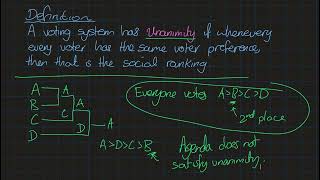 Definition
A voting system has Unanimity if whenevery
every voter has the same voter preference,
then that is the social ranking
Everyone votes A>B>C>D
2nd place
A
B
C
D
A
C
A
D
A
A>D>C>B
Agenda does not
satisfy unanimity,